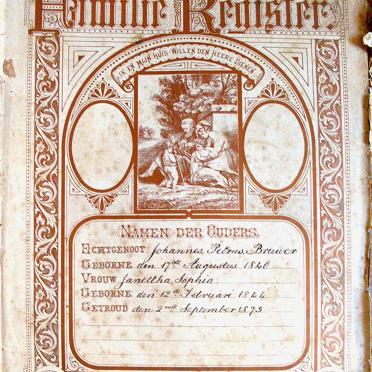 Familie Register.
IK EN MIJN HUIS WILLEN DEN HEERE DIENEN
NAMEN DER OUDERS.
ECHTGENOOT Johannes, Petrus, Brewer
GEBORNE den 17de Augustus 1840
VROUW Janettha, Sophia
GEBORNE den 12de Februari 1844
GETROUD den 2 September 1873